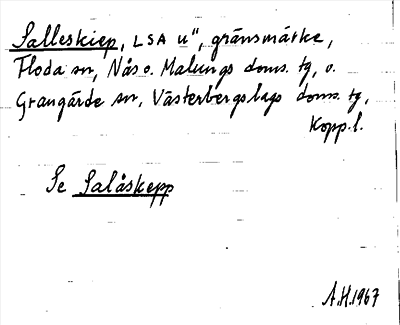 Salleskiep, LSA u", gränsmärke,
Floda sn, Nås o. Malungs doms. tg, o.
Grangärde sn, Västerbergslags doms. tg,
Kopp. l.
Se Salåskepp
A.H. 1967